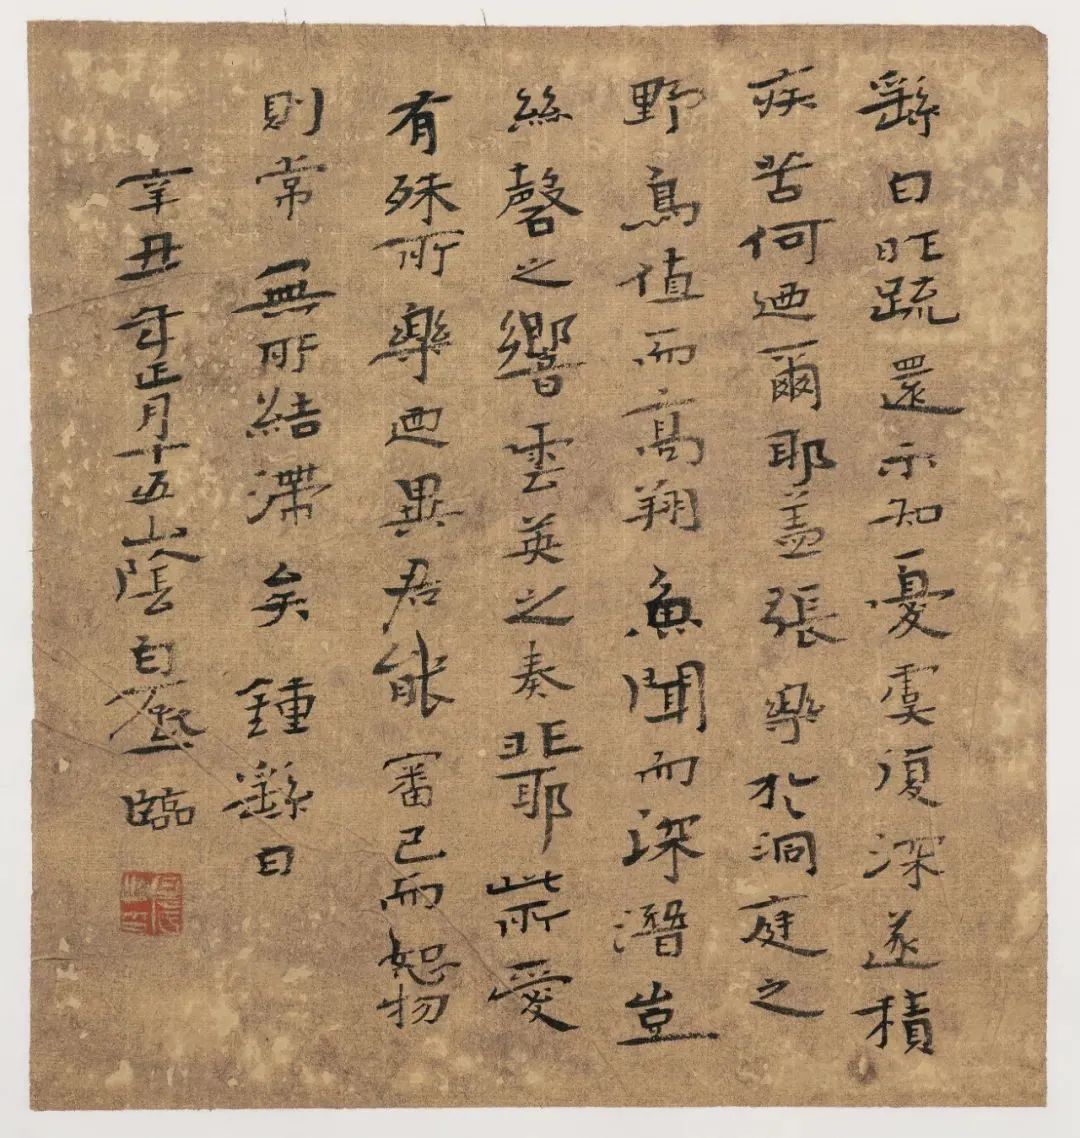 繇白昨疏還示知憂虞復深遂積
疾苦何迺爾耶盖張樂於洞庭之
野鳥值而高翔魚聞而深潛豈
絲磬之響雲英之奏非耶此所愛
有殊所樂迺異君能審己而恕物
則常無所結滯矣鍾繇白
辛丑年正月十五山陰白砥臨